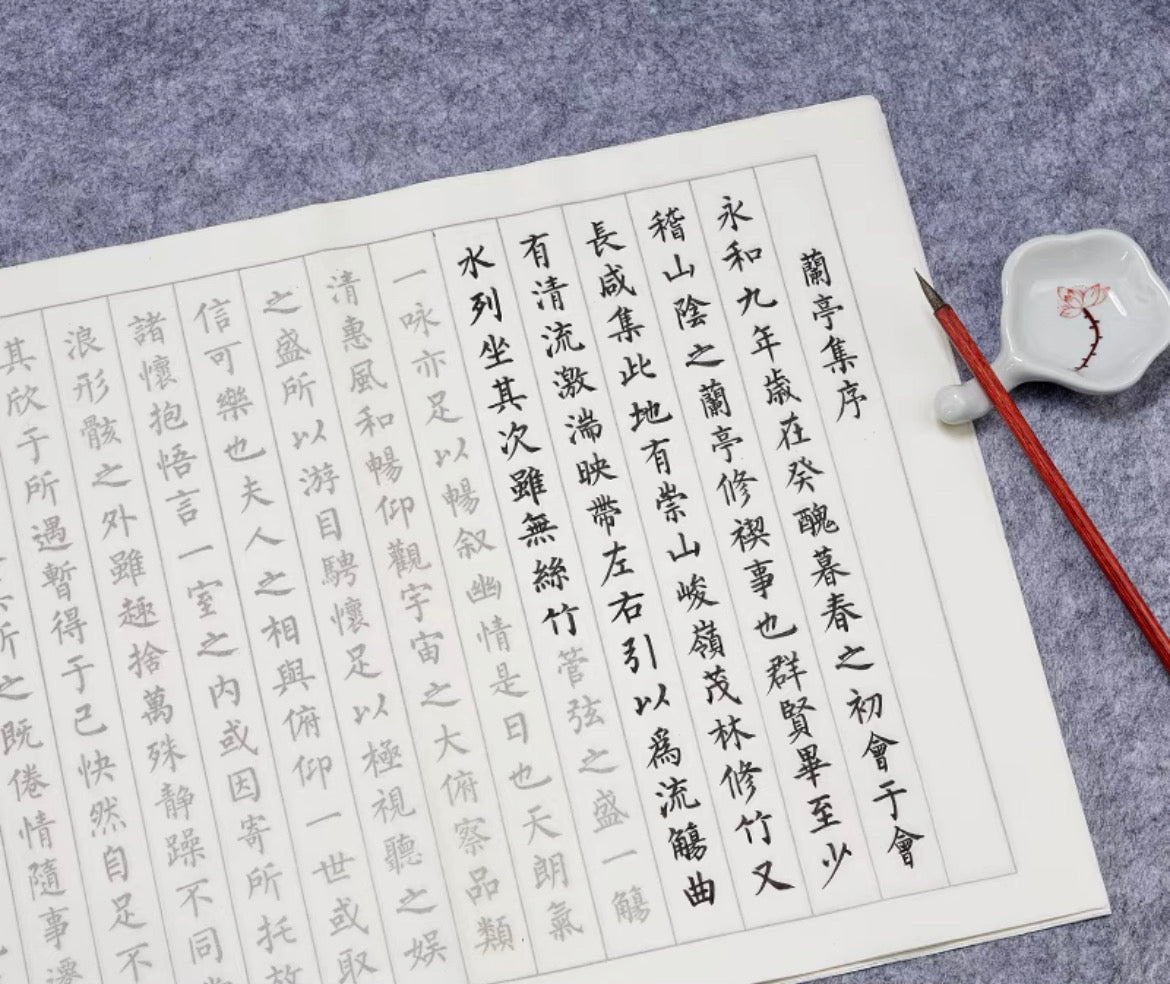 蘭亭集序
永和九年歲在癸醜暮春之初會于會
稽山陰之蘭亭修禊事也群賢畢至少
長咸集此地有崇山峻嶺茂林修竹又
有清流激湍映帶左右引以爲流觴曲
水列坐其次雖無絲竹管弦之盛一觴
一咏亦足以暢叙幽情是日也天朗氣
清惠風和暢仰觀宇宙之大俯察品類
之盛所以游目騁懷足以極視聽之娛
信可樂也夫人之相與俯仰一世或取
諸懷抱悟言一室之内或因寄所托放
浪形骸之外雖趣捨萬殊静躁不同
其欣于所遇暫得于己快然自足不
所之既倦情隨事遷